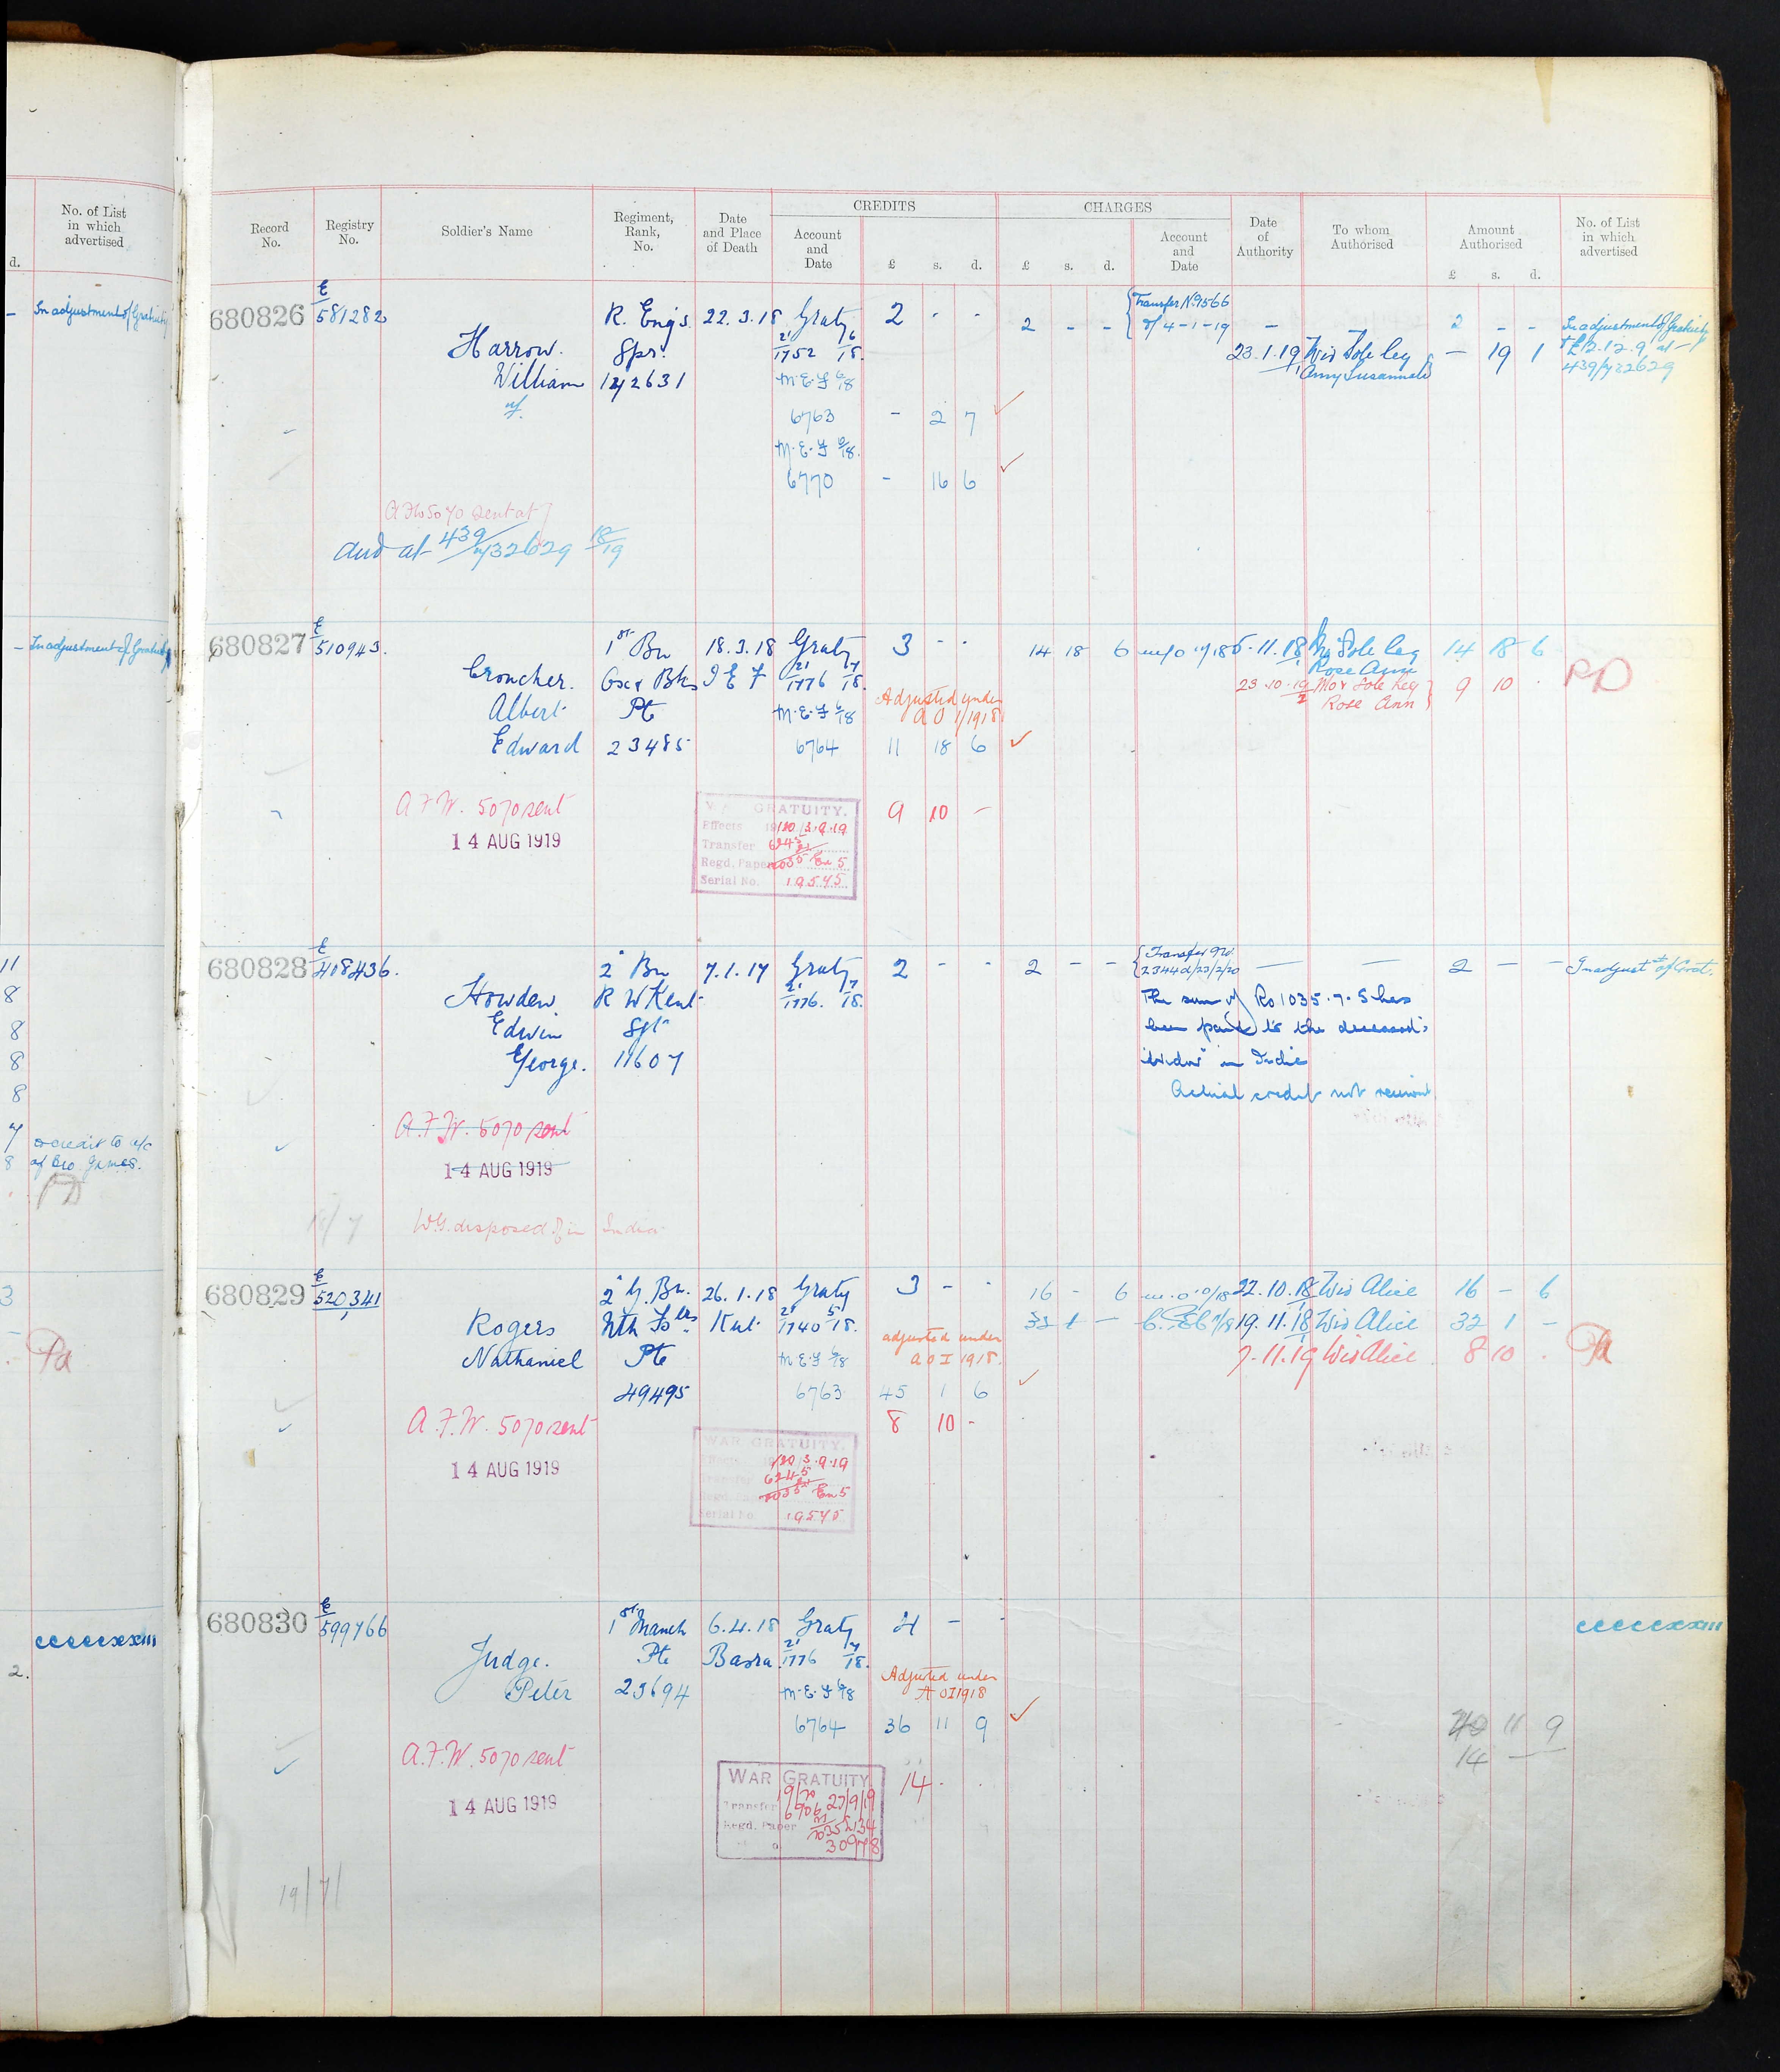 No. of List
in which
advertised
d.
In adjustment of Gratuity
In adjustment of Gratuity
11
8
8
8
8
7 credit to a/c
8 of Bro James.
3
Pd
ccccccxxiii
2.
CREDITS CHARGES
Record No. Registry No. Soldier's Name Regiment, Rank, No. Date and Place of Death Account and Date £ s. d. £ s. d. Account and Date Date of Authority To whom Authorised Amount Authorised £ s. d. No. of List in which advertised
680826 E/581282 R. Eng's 22.3.18 Graty 2 - - 2 - - Transfer No 9566 2 - - In adjustment of Gratuity
d/ 4-1-19
Harrow. Spr. 21/1752 6/18. 23.1.19 Wid Sole Leg - 19 1 + £12.12.9 at
William 142631 M.E.F 6/18 Amy Susannah 439/432629
6763 - 2 7
M.E.F 6/18.
6770 - 16 6
A.F.W 5070 sent at
and at 439/432629 18/19
680827 E/510943. 1st Bn 18.3.18 Graty 3 - - 14 18 6 5.11.18 Mo Sole Leg 14 18 6
Rose Ann
Croncher. Ox & Bks I E F 21/1776 7/18. 23.10.19 Mo & Sole Leg 9 10 . PD
Adjusted under Rose Ann
Albert Pte M.E.F 6/18 A O I/1918
Edward 23485 6764 11 18 6
A.F.W. 5070 sent WAR GRATUITY. 9 10 -
14 AUG 1919 Effects 3.9.19
Transfer 6245
Regd. Paper En 5
Serial No. 19545
680828 E/418436. 2" Bn 7.1.17 Graty 2 - - 2 - - Transfer No. 2 - - In adjustt of Grat.
2344 d/23/2/20
Howden R W Kent 21/1776. 7/18. The sum of Rs 1035.7.5 has
Edwin Sjt been paid to the deceased's
George. 11607 "widow" in India
Actual credit not received
A.F.W. 5070 sent
14 AUG 1919
W.G. disposed of in India
680829 E/520,341 2" G. Bn. 26.1.18 Graty 3 - - 16 - 6 22.10.18 Wid Alice 16 - 6
Rogers Nth Fus Kut 21/1740 5/18. 32 1 - 19.11.18 Wid Alice 32 1 -
adjusted under
Nathaniel Pte M E F 6/18 A O I 1918. 7.11.19 Wid Alice 8 10 . Pd
49495 6763 45 1 6
A.F.W. 5070 sent 8 10 -
14 AUG 1919 WAR GRATUITY.
Effects 3.9.19
Transfer 6245
Regd. Paper En 5
Serial No 19545
680830 E/599766 1st Manch 6.4.18 Graty 4 - - ccccccxxiii
Judge. Pte Basra 21/1776 7/18.
Adjusted under
Peter 23694 M.E.F 6/18 A O I 1918
6764 36 11 9 40 11 9
14
A.F.W. 5070 sent
14 AUG 1919 WAR GRATUITY 14 . .
Transfer 6906 27/9/19
Regd. Paper
30978
19/7/